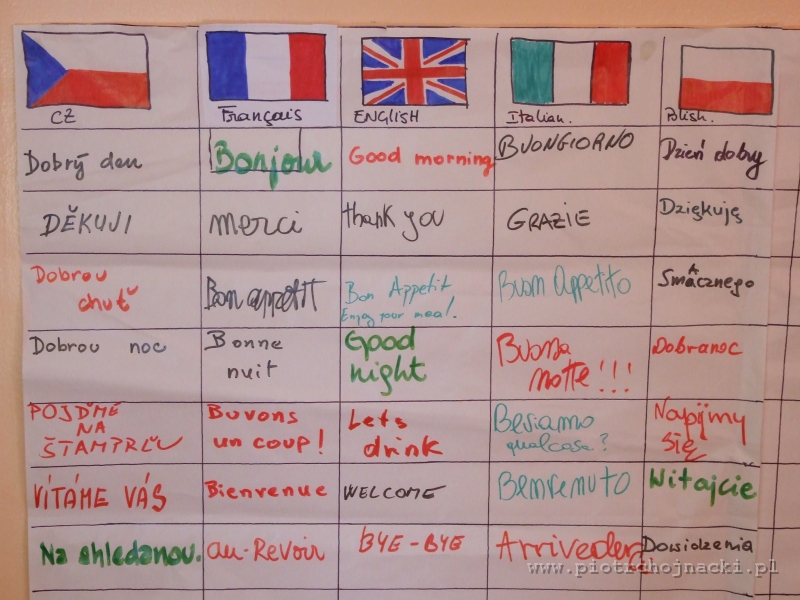 CZ Français ENGLISH Italian. Polish.
Dobrý den Bonjour Good morning BUONGIORNO Dzień dobry
DĚKUJI merci thank you GRAZIE Dziękuję
Dobrou chuť Bon appetit Bon Appetit Enjoy your meal! Buon Appetito Smacznego
Dobrou noc Bonne nuit Good night Buona notte!!! Dobranoc
POJĎME NA ŠTAMPRLU Buvons un coup! Lets drink Beviamo qualcosa? Napijmy się
VÍTÁME VÁS Bienvenue WELCOME Benvenuto Witajcie
Na shledanou. au-Revoir BYE-BYE Arrivederci Dowidzenia
www.piotrchojnacki.pl